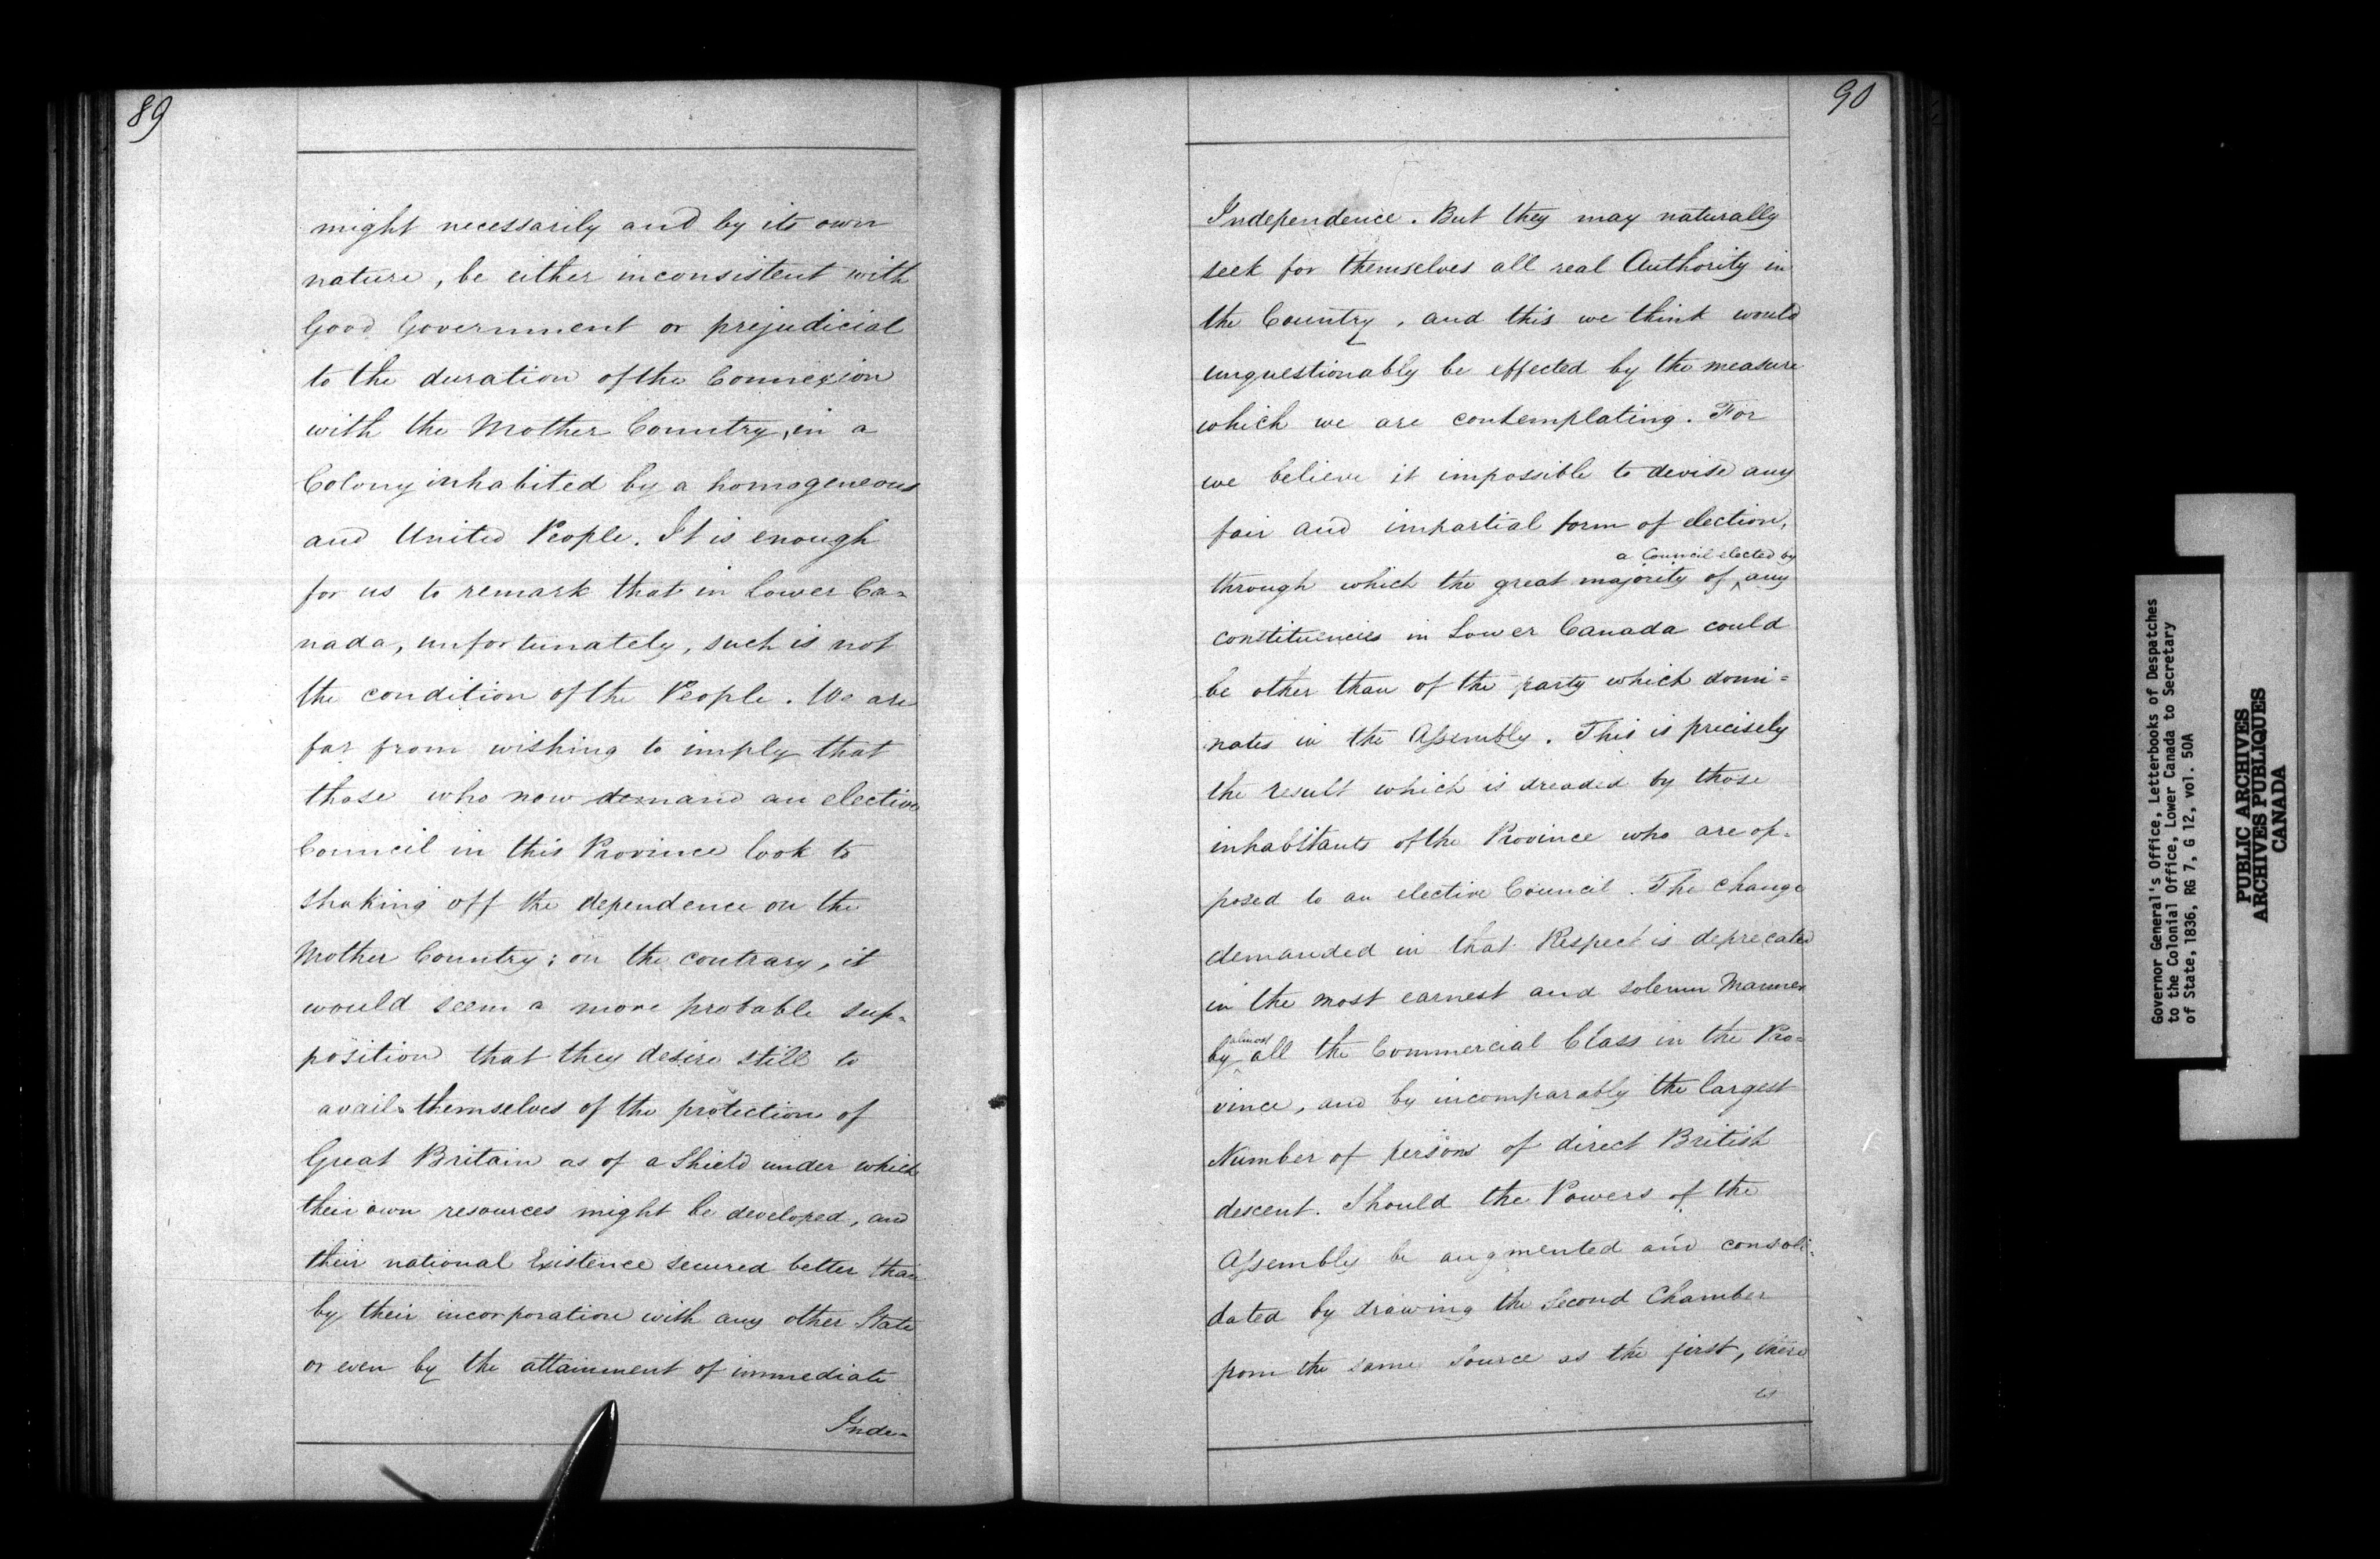 89
might necessarily and by its own
nature, be either inconsistent with
Good Government or prejudicial
to the duration of the Connexion
with the Mother Country, in a
Colony inhabited by a homogeneous
and United People. It is enough
for us to remark that in Lower Ca=
nada, unfortunately, such is not
the condition of the People. We are
far from wishing to imply that
those who now demand an elective
Council in this Province look to
shaking off the dependence on the
Mother Country; on the contrary, it
would seem a more probable sup=
position that they desire still to
avail themselves of the protection of
Great Britain as of a Shield under which
their own resources might be developed, and
their national Existence secured better than
by their incorporation with any other State
or even by the attainment of immediate
Inde=
90
Independence. But they may naturally
seek for themselves all real Authority in
the Country, and this we think would
unquestionably be effected by the measure
which we are contemplating. For
we believe it impossible to devise any
fair and impartial form of election,
a Council elected by
through which the great majority of ^ any
constituencies in Lower Canada could
be other than of the party which domi=
nates in the Assembly. This is precisely
the result which is dreaded by those
inhabitants of the Province who are op=
posed to an elective Council. The change
demanded in that Respect is deprecated
in the most earnest and solemn Manner
almost
by ^ all the Commercial Class in the Pro=
vince, and by incomparably the largest
Number of persons of direct British
descent. Should the Powers of the
Assembly be augmented and consoli=
dated by drawing the Second Chamber
from the same source as the first, there
is
Governor General's Office, Letterbooks of Despatches
to the Colonial Office, Lower Canada to Secretary
of State, 1836, RG 7, G 12, vol. 50A
PUBLIC ARCHIVES
ARCHIVES PUBLIQUES
CANADA